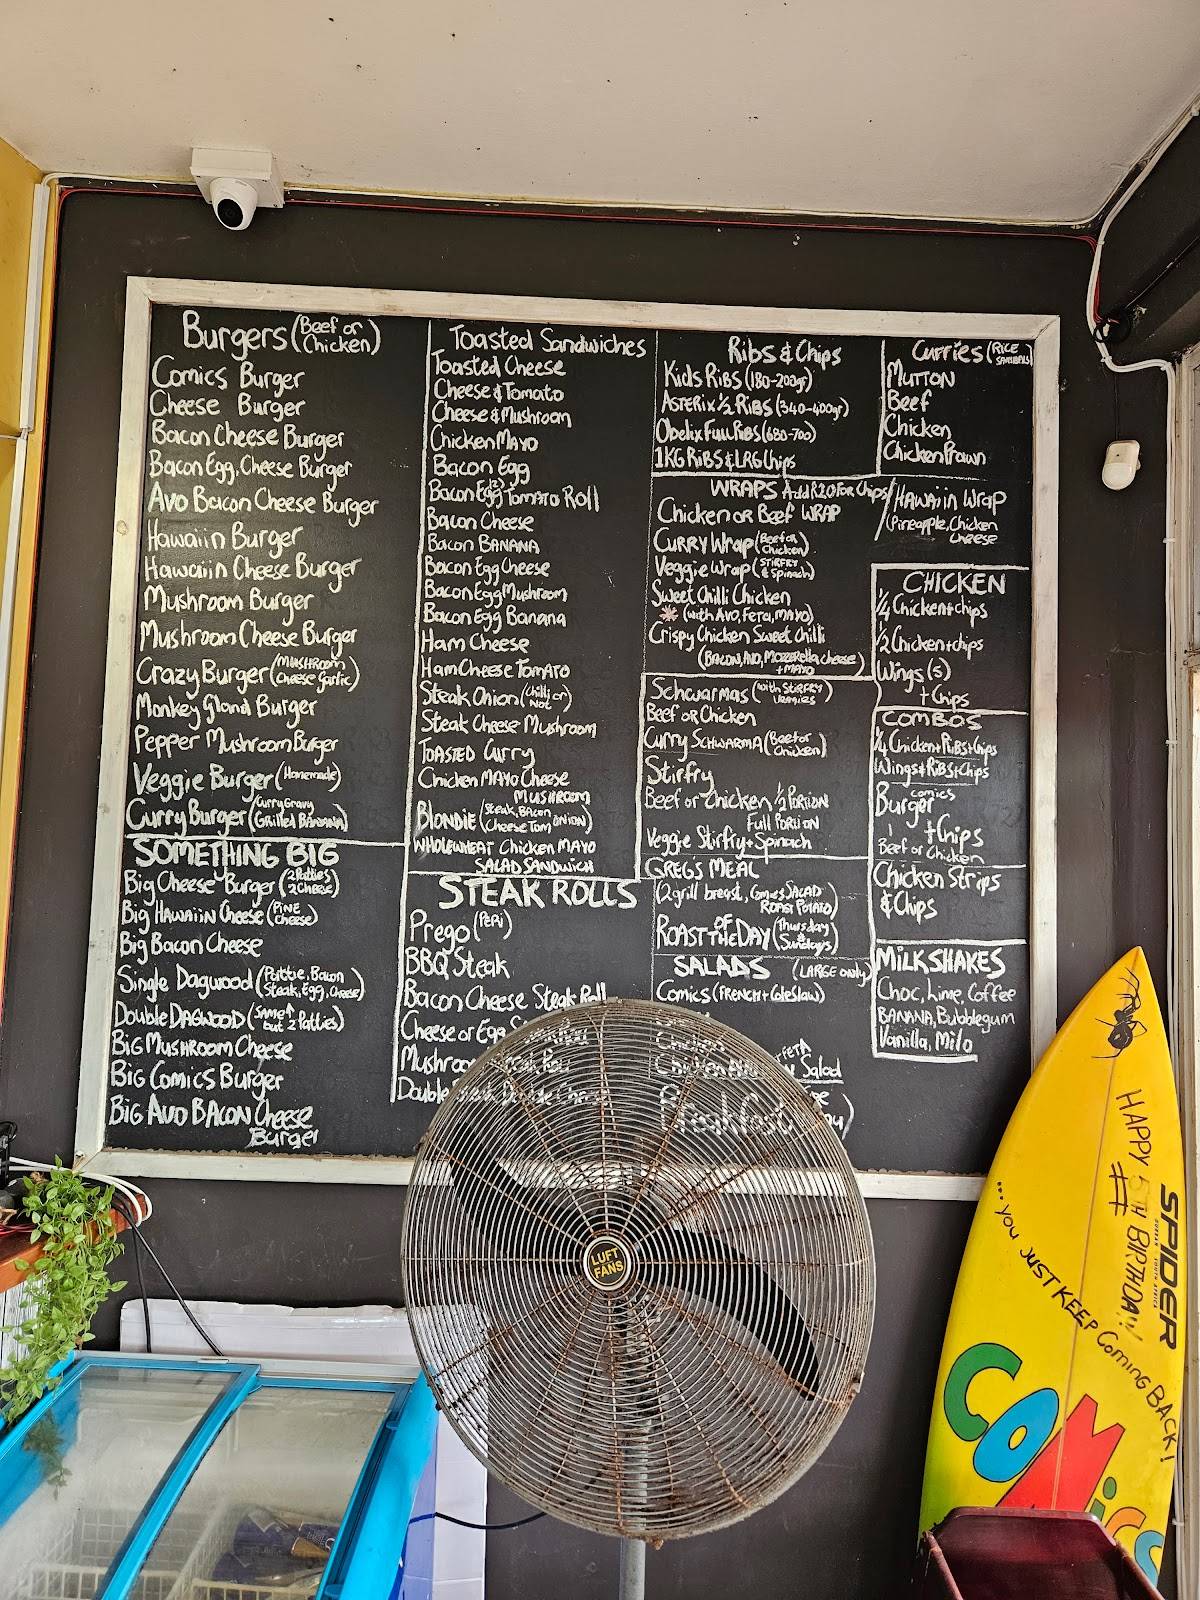 Burgers (Beef or Chicken)
Comics Burger
Cheese Burger
Bacon Cheese Burger
Bacon Egg, Cheese Burger
Avo Bacon Cheese Burger
Hawaiin Burger
Hawaiin Cheese Burger
Mushroom Burger
Mushroom Cheese Burger
Crazy Burger (Mushroom Cheese Garlic)
Monkey Gland Burger
Pepper Mushroom Burger
Veggie Burger (Homemade)
Curry Burger (Curry Gravy Grilled Banana)
SOMETHING BIG
Big Cheese Burger (2 Patties 2 Cheese)
Big Hawaiin Cheese (Pine Cheese)
Big Bacon Cheese
Single Dagwood (Pattie, Bacon Steak, Egg, Cheese)
Double DAGWOOD (same↑ but 2 Patties)
Big Mushroom Cheese
Big Comics Burger
Big Avo Bacon Cheese
Burger
Toasted Sandwiches
Toasted Cheese
Cheese & Tomato
Cheese & Mushroom
Chicken Mayo
Bacon Egg
Bacon Egg (2) Tomato Roll
Bacon Cheese
Bacon BANANA
Bacon Egg Cheese
Bacon Egg Mushroom
Bacon Egg Banana
Ham Cheese
Ham Cheese Tomato
Steak Onion (Chilli or Not)
Steak Cheese Mushroom
TOASTED Curry
Chicken MAYO Cheese
MUSHROOM
BLONDIE (Steak, BACON Cheese Tom ONION)
WHOLEWHEAT Chicken MAYO
SALAD SANDWICH
STEAK ROLLS
Prego (Peri)
BBQ Steak
Bacon Cheese Steak Roll
Cheese or Egg
Double
Ribs & Chips
Kids Ribs (180-200gr)
ASTERix ½ Ribs (340-400gr)
Obelix Full Ribs (680-700)
1KG RIBS & LRG Chips
WRAPS Add R20 For Chips
Chicken or Beef WRAP
CURRY Wrap (Beef or Chicken)
Veggie Wrap (STIRFRY & Spinach)
Sweet Chilli Chicken
(with AVO, Feta, MAYO)
Crispy Chicken Sweet Chilli
(BACON, AVO, Mozerella cheese
+ MAYO
Schwarmas (with STIRFRY Veggies)
Beef or Chicken
Curry SCHWARMA (Beef or Chicken)
Stirfry
Beef or Chicken ½ PORTION
Full PORTION
Veggie Stirfry + Spinach
GREGS MEAL
(2 grill breast, Comics SALAD
ROAST POTATO)
ROAST OF THE DAY (Thursday & Sundays)
SALADS (LARGE only)
Comics (FRENCH + Coleslaw)
Chicken
Salad
Breakfast
Curries (RICE SAMBALS)
MUTTON
Beef
Chicken
Chicken Prawn
HAWAiiN WRAP
(Pineapple, Chicken
Cheese
CHICKEN
¼ Chicken + chips
½ Chicken + chips
Wings (5)
+ Chips
COMBOS
¼ Chicken + Ribs + Chips
Wings + Ribs + Chips
comics
Burger
+ Chips
Beef or Chicken
Chicken Strips
& Chips
MILKSHAKES
Choc, Lime, Coffee
BANANA, Bubblegum
Vanilla, Milo
LUFT
FANS
HAPPY 5TH BIRTHDAY!
#
SPIDER
DURBAN SOUTH AFRICA
...YOU JUST KEEP Coming BACK!
COMiCS